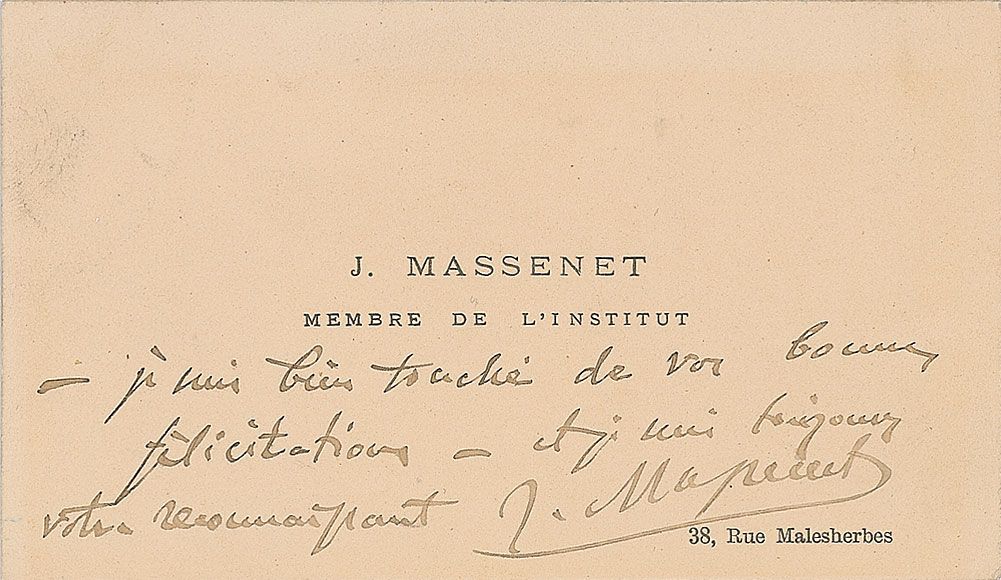 J. MASSENET
MEMBRE DE L'INSTITUT
— je suis bien touché de vos bonnes
félicitations — et je suis toujours
votre reconnaissant J. Massenet
38, Rue Malesherbes